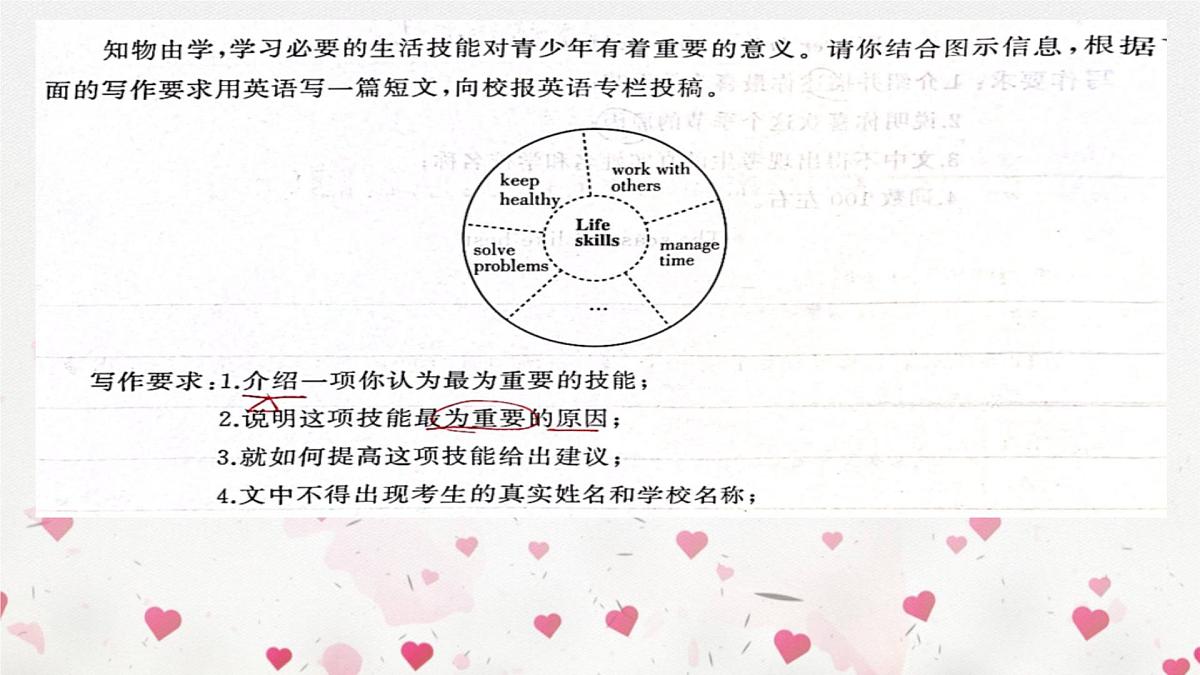 知物由学，学习必要的生活技能对青少年有着重要的意义。请你结合图示信息，根据
面的写作要求用英语写一篇短文，向校报英语专栏投稿。
keep
healthy
work with
others
Life
skills
solve
problems
manage
time
...
写作要求：1.介绍一项你认为最为重要的技能；
2.说明这项技能最为重要的原因；
3.就如何提高这项技能给出建议；
4.文中不得出现考生的真实姓名和学校名称；